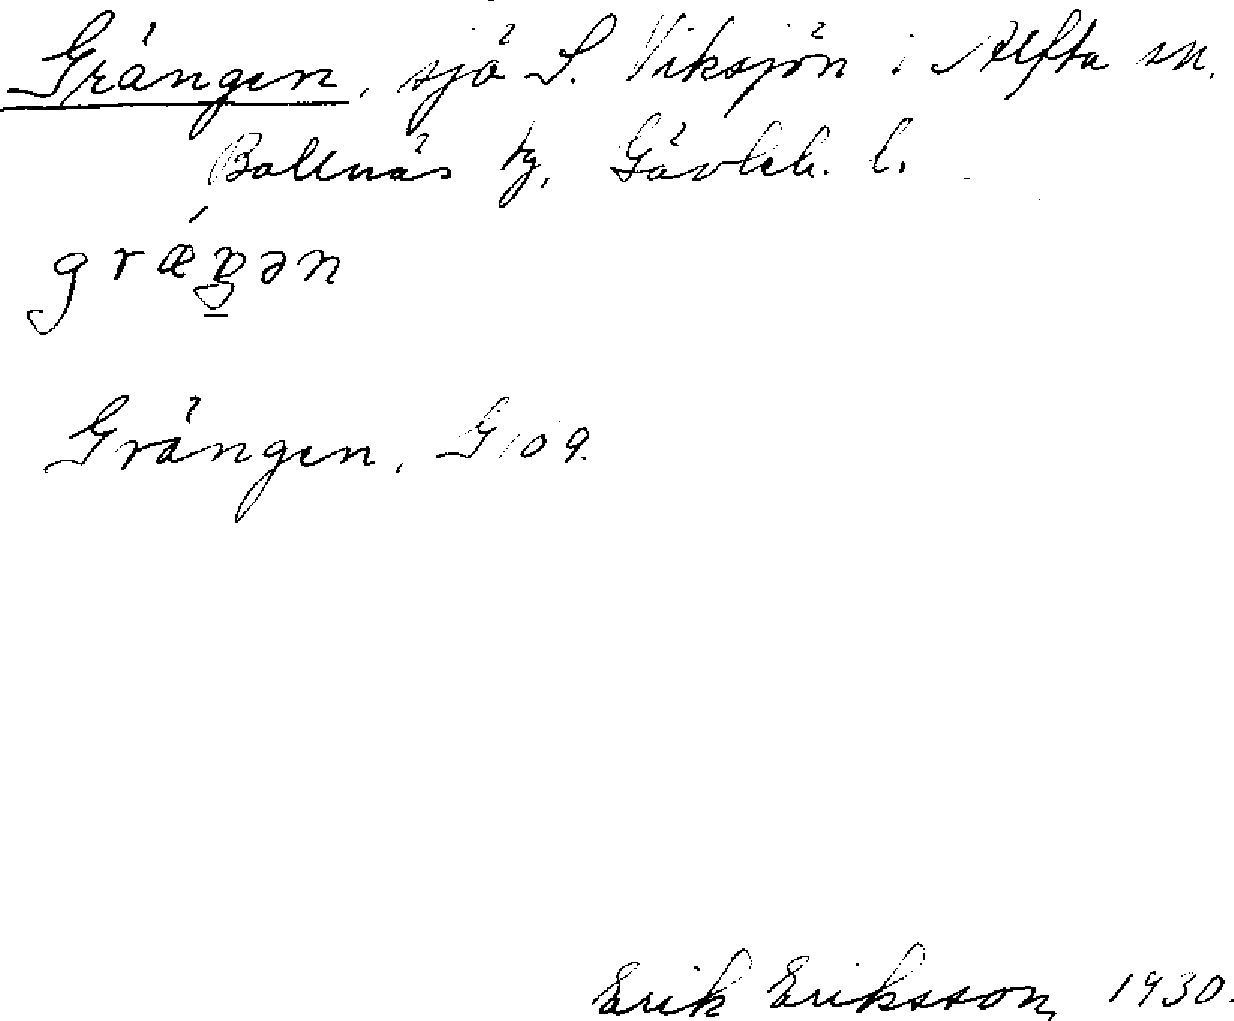 Grängen, sjö S. Viksjön i Alfta sn.
Bollnäs tg, Gävleb. l.
græŋən
Grängen, G 109.
Erik Eriksson, 1930.